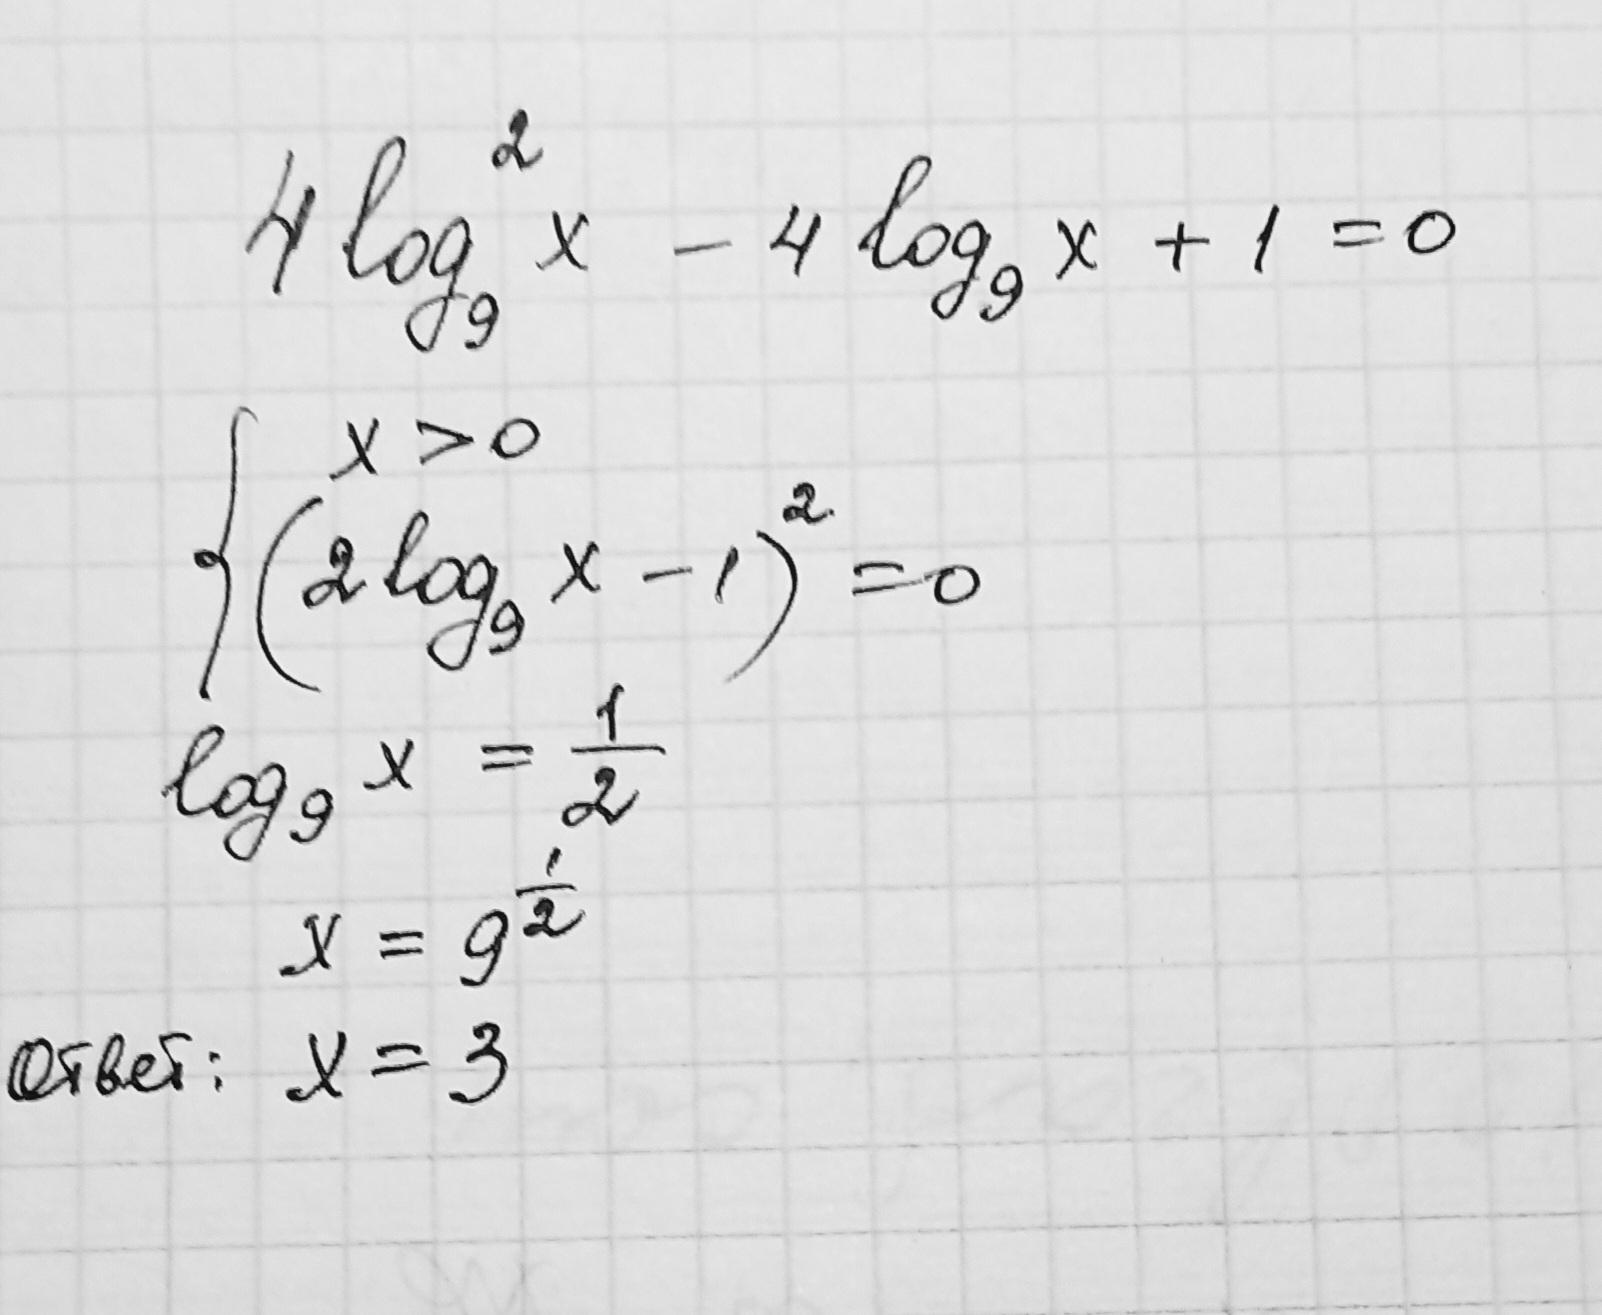 4 log₉² x − 4 log₉ x + 1 = 0
{ x > 0
(2 log₉ x − 1)² = 0
log₉ x = 1/2
x = 9^(1/2)
Ответ: x = 3